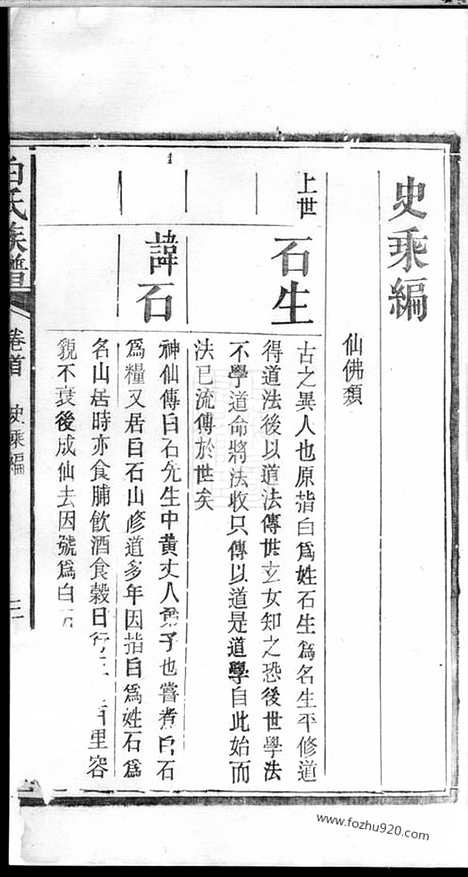 史乘編
仙佛類
上世
石生
古之異人也原指白爲姓石生爲名生平修道
得道法後以道法傳世玄女知之恐後世學法
不學道命將法收只傳以道是道學自此始而
法已流傳於世矣
諱石
神仙傳白石先生中黃丈人弟子也嘗煮白石
爲糧又居白石山修道多年因指白爲姓石爲
名山居時亦食脯飲酒食穀日行三百里容
貌不衰後成仙去因號爲白
白氏族譜
卷首
史乘編
三
www.fozhu920.com